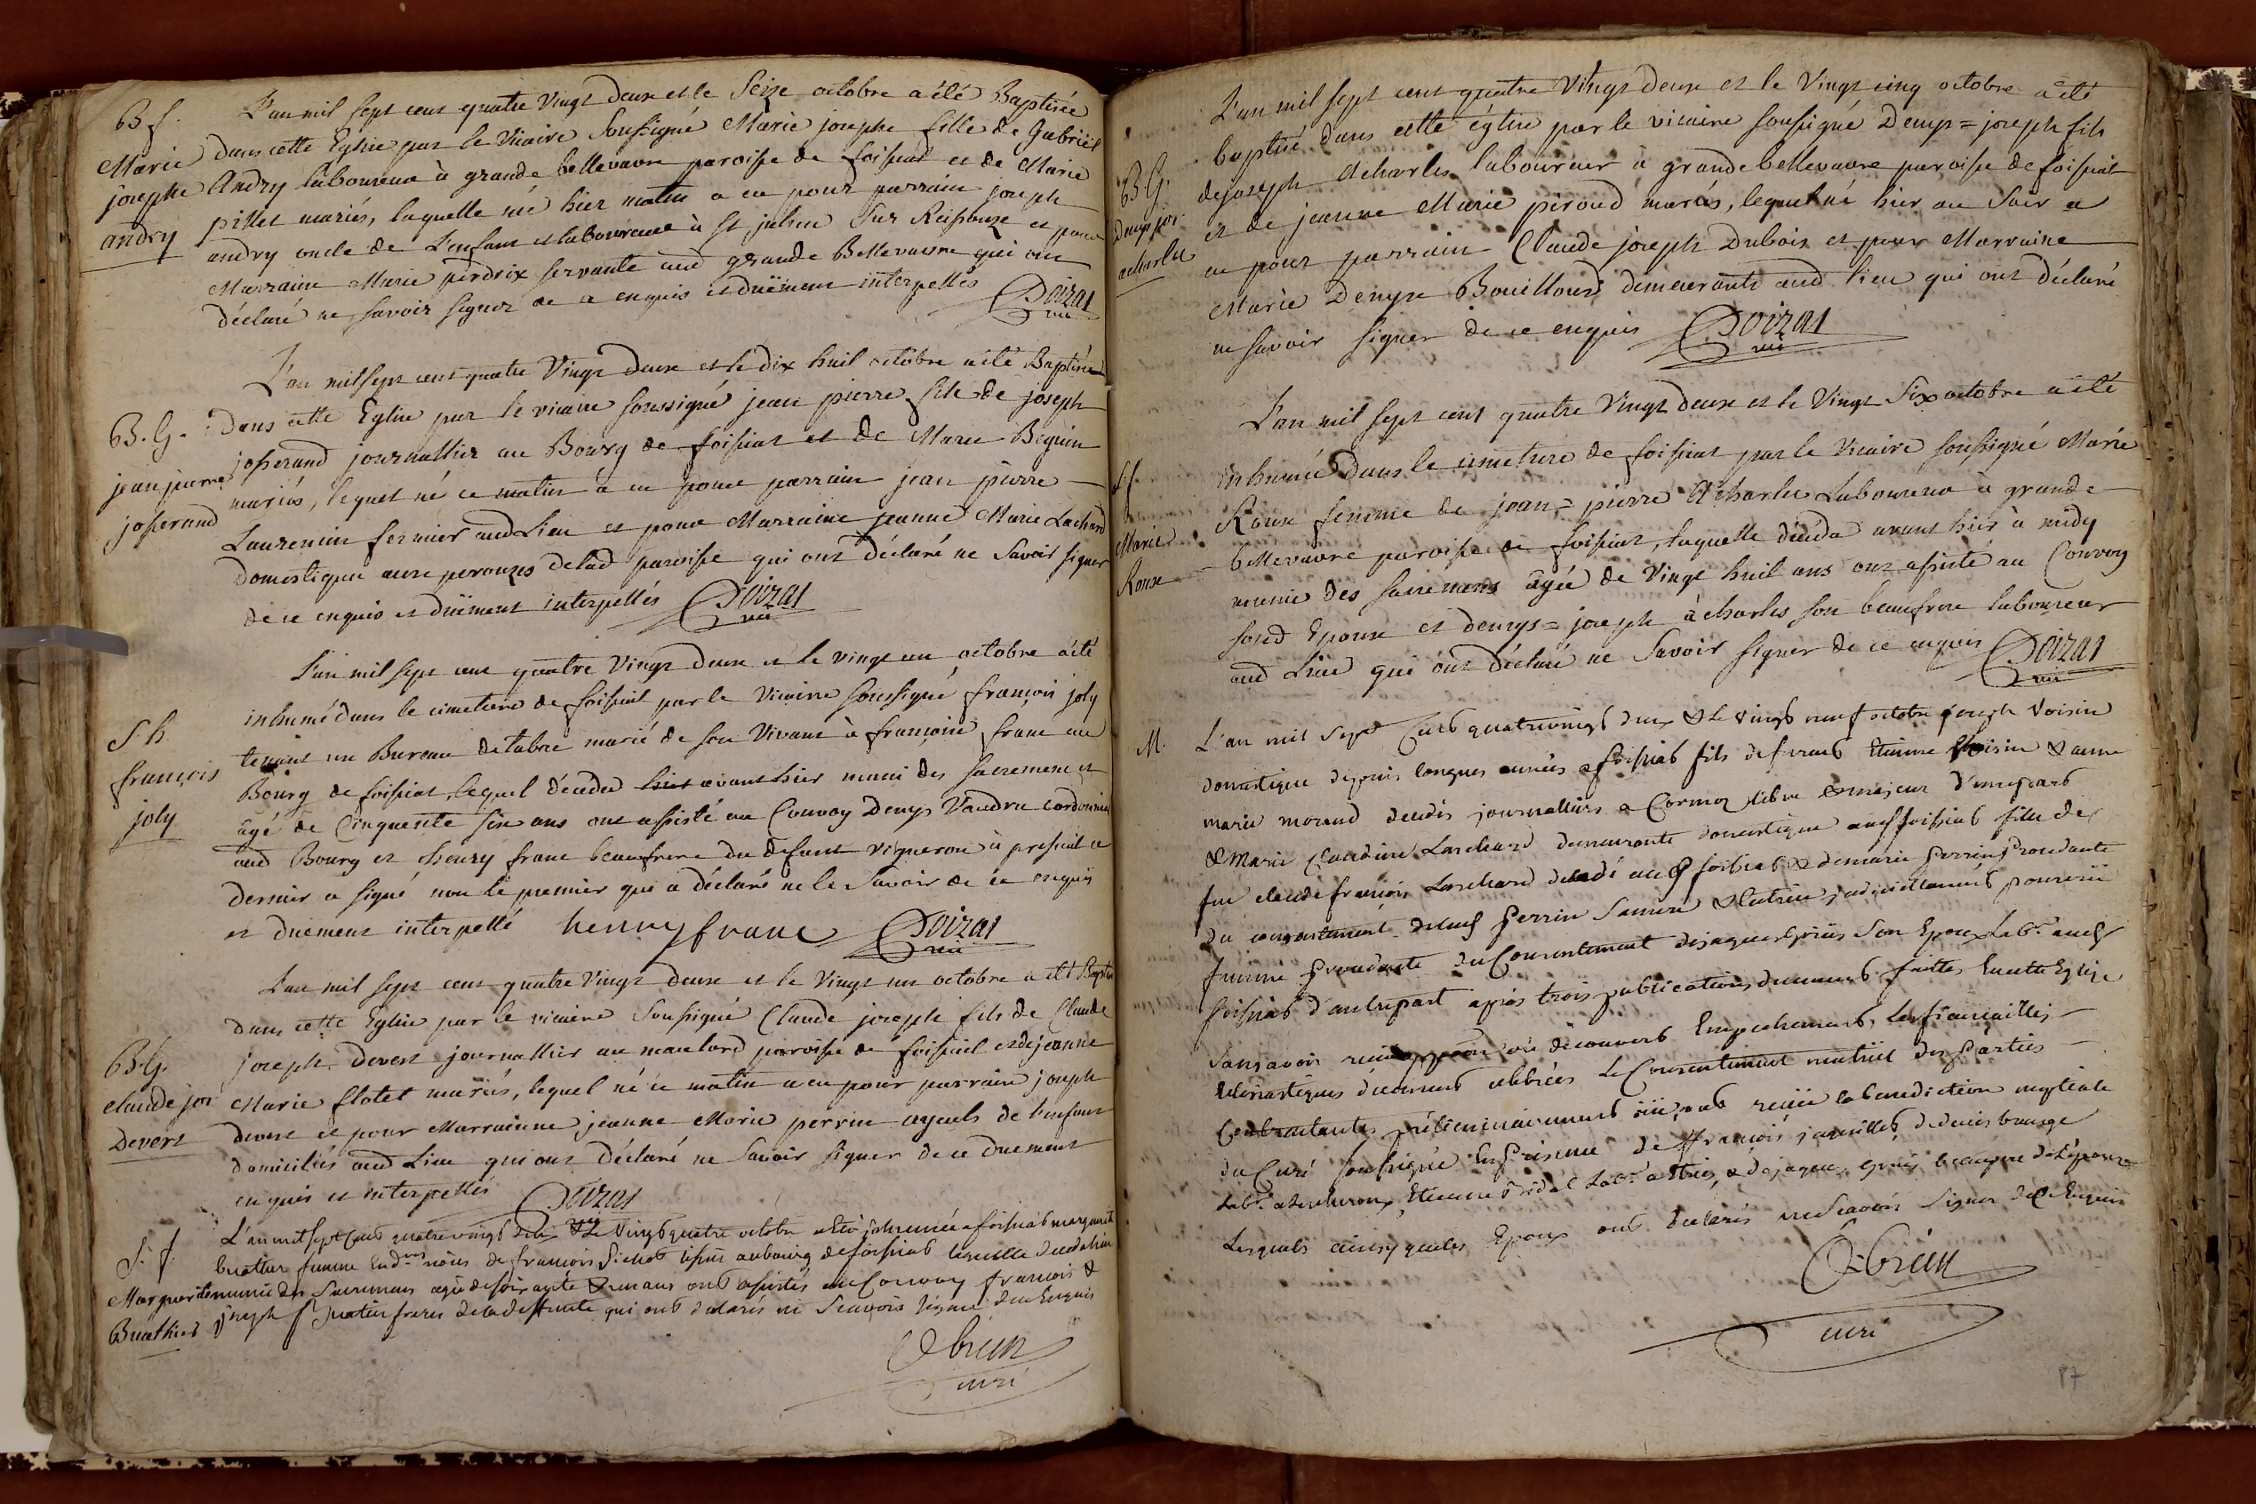 B f.
Marie
josephe
andry
L'an mil sept cent quatre Vingt deux et le Seize octobre a été Baptisée
Dans cette Eglise par le Vicaire Soussigné Marie josephe fille de Gabriël
Andry laboureur à grande bellevavre paroisse de foissiat et de Marie
pillet mariés, laquelle né hier matin a eu pour parrain joseph
andry oncle de L'enfant et laboureur à St julien Sur Reissouze et pour
Marraine Marie perdrix servante aud grande Bellevavre qui ont
déclaré ne savoir signer de ce enquis et duëment interpellés Doizat
vic
B. G.
jean pierre
josserand
L'an mil sept cent quatre Vingt deux et le dix huit octobre a été Baptisé
Dans cette Eglise par le vicaire soussigné jean pierre fils de joseph
josserand journallier au Bourg de foissiat et de Marie Beguin
mariés, lequel né ce matin a eu pour parrain jean pierre
Laurencin fermier aud Lieu et pour Marraine jeanne Marie Lachard
domestique aux perouzes de lad paroisse qui ont déclaré ne Savoir signer
de ce enquis et duëment interpellés Doizat
vic
S h.
françois
joly
L'an mil sept cent quatre Vingt deux et le vingt un octobre a été
inhumé dans le cimetiere de foissiat par le Vicaire soussigné françois joly
tenant un Bureau de tabac marié de son Vivant à françoise franc au
Bourg de foissiat, lequel décéda hier avant hier muni des sacremens et
âgé de Cinquante six ans ont assisté au Convoy Denys Vaudru cordonnier
aud Bourg et henry franc beaufrere du défunt vigneron à present ce
dernier a signé non le premier qui a déclaré ne le Savoir de ce enquis
et duëment interpellé henry franc Doizat
vic
B. G.
claude jos
Devers
L'an mil sept cent quatre Vingt deux et le Vingt un octobre a été Baptisé
dans cette Eglise par le vicaire Soussigné Claude joseph fils de Claude
joseph Devers journallier au manlard paroisse de foissiat et de jeanne
Marie flotet mariés, lequel né ce matin a eu pour parrain joseph
devers et pour Marrainne jeanne Marie perrin ayeuls de l'enfant
domiciliés aud Lieu qui ont déclaré ne Savoir signer de ce Duement
enquis et interpellés Doizat
vic
S. f.
Marguerite
Buathier
L'an mil sept Cent quatre vingt deux & le Vingt quatre octobre a été inhumée a foissiat marguerite
buathier femme en noies de françois Pichot au bourg de foissiat laquelle deceda hier
munie des Sacremens agée de soixante & un ans ont assistés au Convoy françois &
joseph Buatier freres de la deffunte qui ont declarés ne Scavoir Signer de ce Enquis
Obrien
curé
B. G.
Denys jos.
acharles
L'an mil sept cent quatre Vingt deux et le Vingt cinq octobre a été
baptisé dans cette église par le vicaire soussigné Denys = joseph fils
de joseph Acharles laboureur à grande bellevavre paroisse de foissiat
et de jeanne Marie piroud mariés, lequel né hier au Soir a
eu pour parrain Claude joseph Dubois et pour Marraine
Marie Denyse Bouilloud demeurants aud lieu qui ont déclaré
ne savoir signer de ce enquis Doizat
vic
S f.
Marie
Roux
L'an mil sept cent quatre Vingt deux et le Vingt Six octobre a été
inhumée dans le cimetiere de foissiat par le Vicaire soussigné Marie
Roux femme de jean = pierre Acharles Laboureur à grande
bellevavre paroisse de foissiat, laquelle décéda avant hier à midy
munie des sacremens âgée de Vingt huit ans ont assisté au Convoy
sond Epoux et denys = joseph àcharles son beaufrere laboureur
aud Lieu qui ont déclaré ne Savoir signer de ce enquis Doizat
vic
M.
L'an mil Sept Cent quatrevingt deux & le vingt neuf octobre joseph Voisin
domestique depuis longues années a foissiat fils de furent Etienne Voisin & anne
marie morand decedés journalliers a Cormoz libre & majeur d'une part
& Marie Claudine Lanchard demeurante domestique aud foissiat fille de
feu claude françois Lanchard decedé aud foissiat & de marie Perrin Procedante
du consentement dud Perrin Samere
femme Procedante du Consentement de jaques Son Epoux Labr. aud
foissiat d'autre part après trois publications duement faittes En cette Eglise
Sans avoir reçu ni découvert Empechement, Les fiançailles
Eclesiastiques duement celebrées Le Consentement mutüel des Parties
Contractantes préliminairement oüi, ont reçu la benediction nuptiale
du Curé soussigné En Présence de françois
Labr. Etienne Vidal Labr. & de jaques beaupere de l'épouse
Lesquels ainsy que les Epoux ont declarés ne Scavoir Signer de ce Enquis
Obrien
curé
87